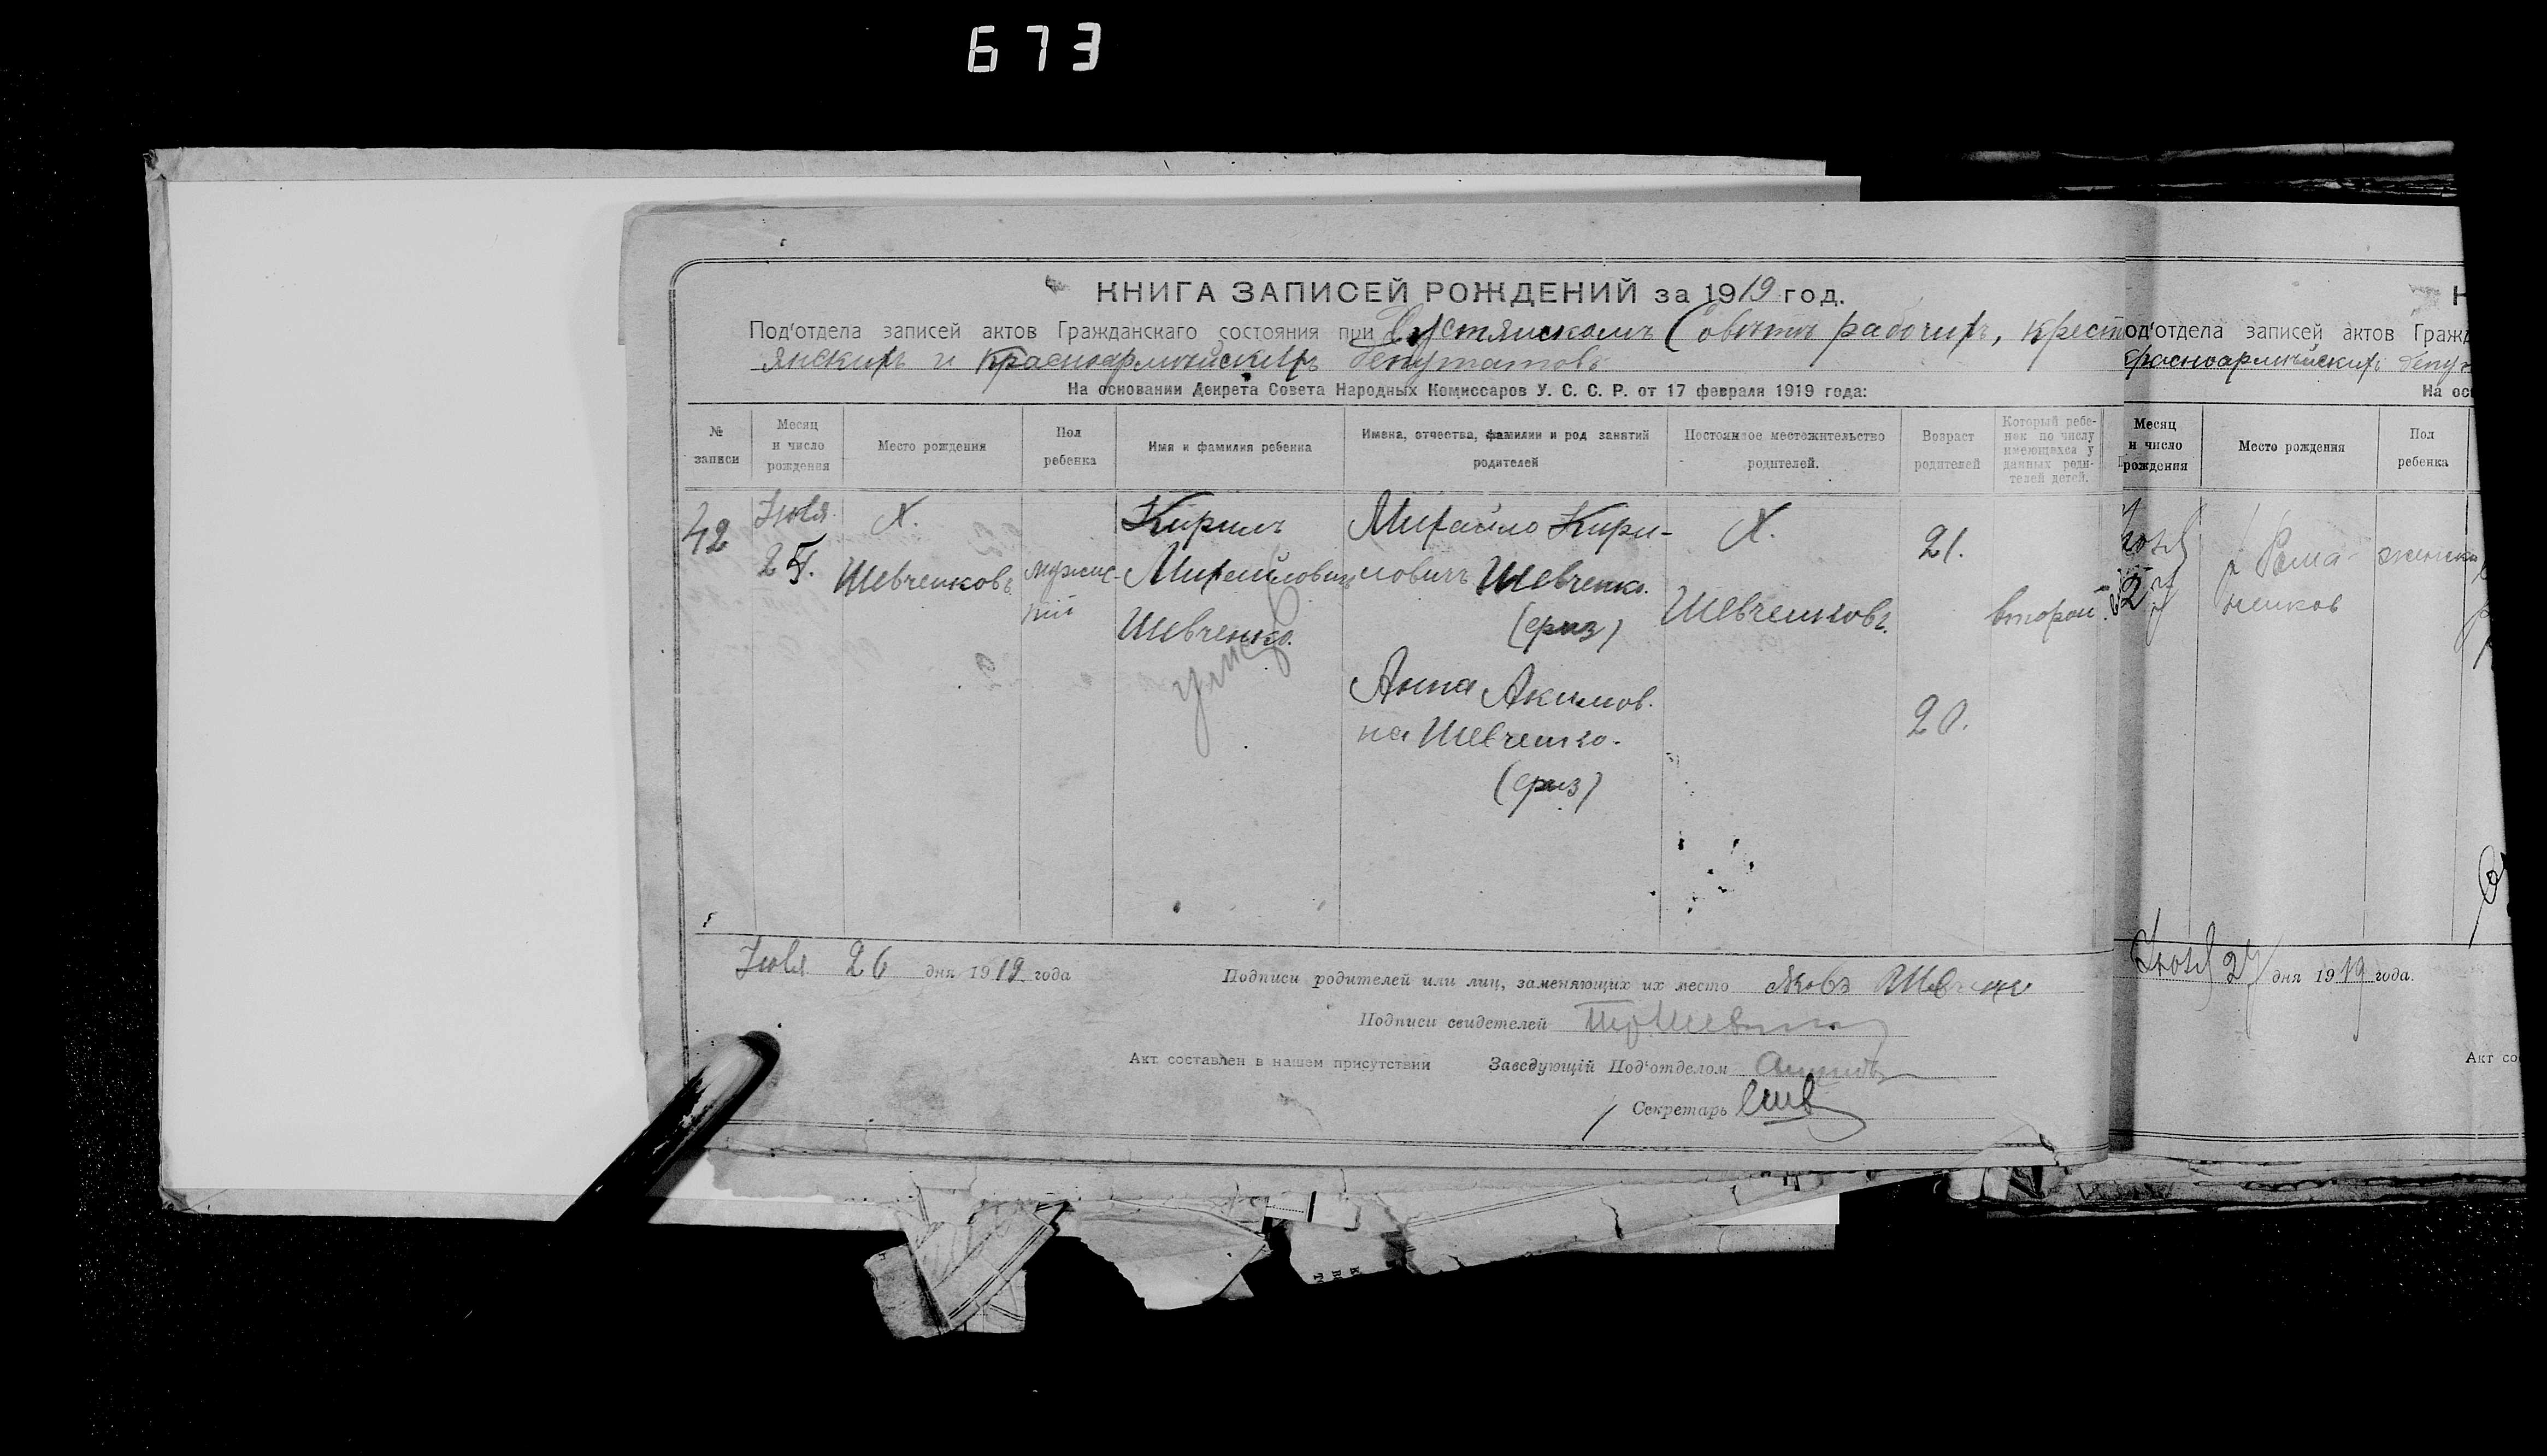 673
КНИГА ЗАПИСЕЙ РОЖДЕНИЙ за 1919 год.
Под'отдела записей актов Гражданскаго состояния при Устянскомъ Советѣ рабочихъ, крест
янскихъ и красноармейскихъ депутатовъ
На основании Декрета Совета Народных Комиссаров У. С. С. Р. от 17 февраля 1919 года:
№ записи
Месяц и число рождения
Место рождения
Пол ребенка
Имя и фамилия ребенка
Имена, отчества, фамилии и род занятий родителей
Постоянное местожительство родителей.
Возраст родителей
Который ребенок по числу имеющихся у данных родителей детей.
42
Июля
25.
Х.
Шевченковъ
мужс-
кий
Кирилъ
Михайловичъ
Шевченко.
умер
Михайло Кири-
ловичъ Шевченко.
Анна Акимов.
на Шевченко.
Х.
Шевченковъ.
21.
20.
второй.
Июля 26 дня 1919 года
Подписи родителей или лиц, заменяющих их место Яковъ Шевченко
Подписи свидетелей
Акт составлен в нашем присутствии Заведующій Под'отделом
Секретарь
од'отдела записей актов Гражд
красноармейскихъ депут
На ос
Месяц и число рождения
Место рождения
Пол ребенка
Июля
27
х Рома-
ненков
женска
Июля 27 дня 1919 года.
Акт со